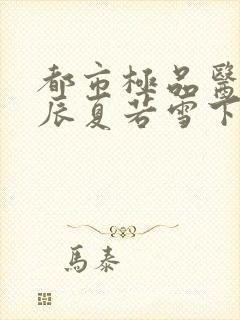 都市極品醫
辰夏若雪下
馬泰